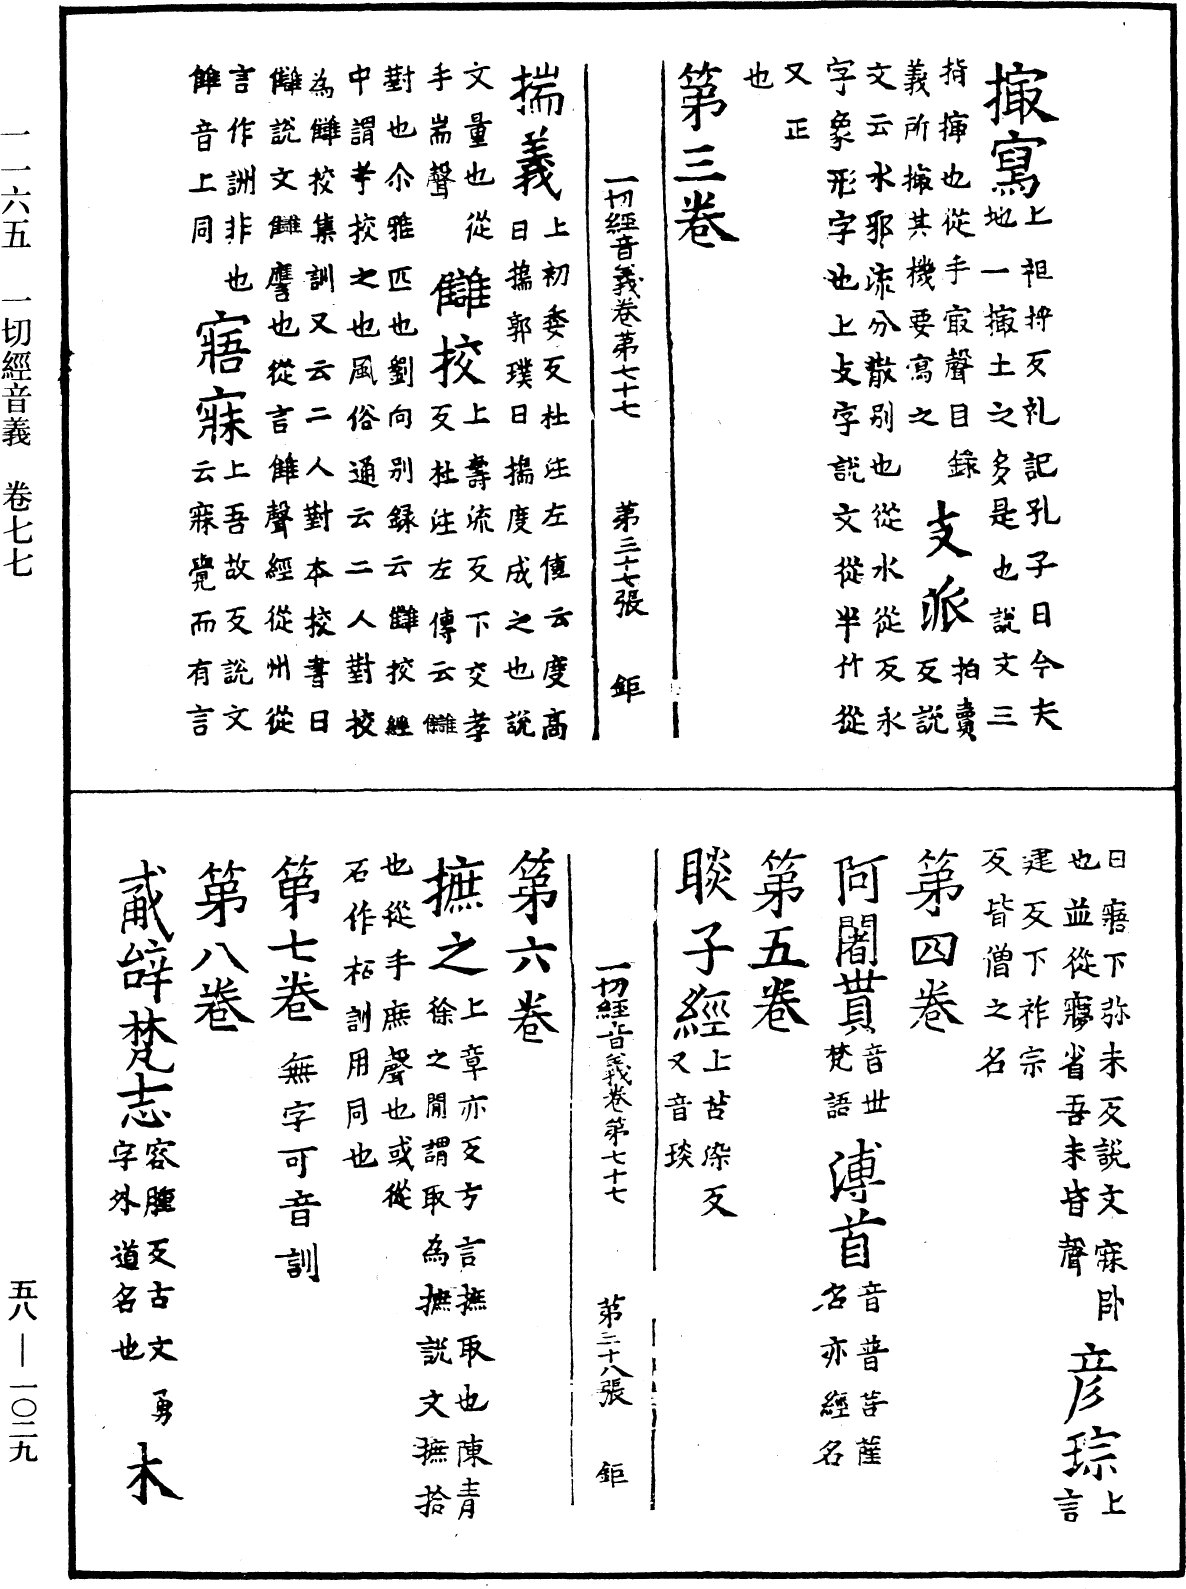 撮寫上祖捋反礼記孔子曰今夫
地一撮土之多是也說文三
指撮也從手最聲目録
義所撮其機要寫之
支派拍賣
反說
文云水邪流分散別也從水從反永
字象形字也上支字說文從半竹從
又正
也
第三卷
一切經音義卷第七十七 第三十七張 鉅
揣義上初委反杜注左傳云度高
曰揣郭璞曰揣度成之也說
文量也從
手耑聲
讎挍上壽流反下交孝
反杜注左傳云讎
對也尒雅匹也劉向別録云讎挍經
中謂考挍之也風俗通云二人對挍
為讎挍集訓又云二人對本挍書曰
讎說文讎譍也從言雔聲經從州從
言作詶非也
雔音上同
寤寐上吾故反說文
云寐覺而有言
曰寤下弥未反說文寐卧
也並從㝱省吾未皆聲
彦琮上
言
建反下祚宗
反皆僧之名
第四卷
阿闍貰音世
梵語
溥首音普菩薩
名亦經名
第五卷
睒子經上苫染反
又音琰
一切經音義卷第七十七 第三十八張 鉅
第六卷
摭之上章亦反方言摭取也陳青
徐之閒謂取為摭說文摭拾
也從手庶聲也或從
石作拓訓用同也
第七卷 無字可音訓
第八卷
辞梵志容腫反古文勇
字外道名也
木
一一六五 一切經音義 卷七七
五八—一〇二九